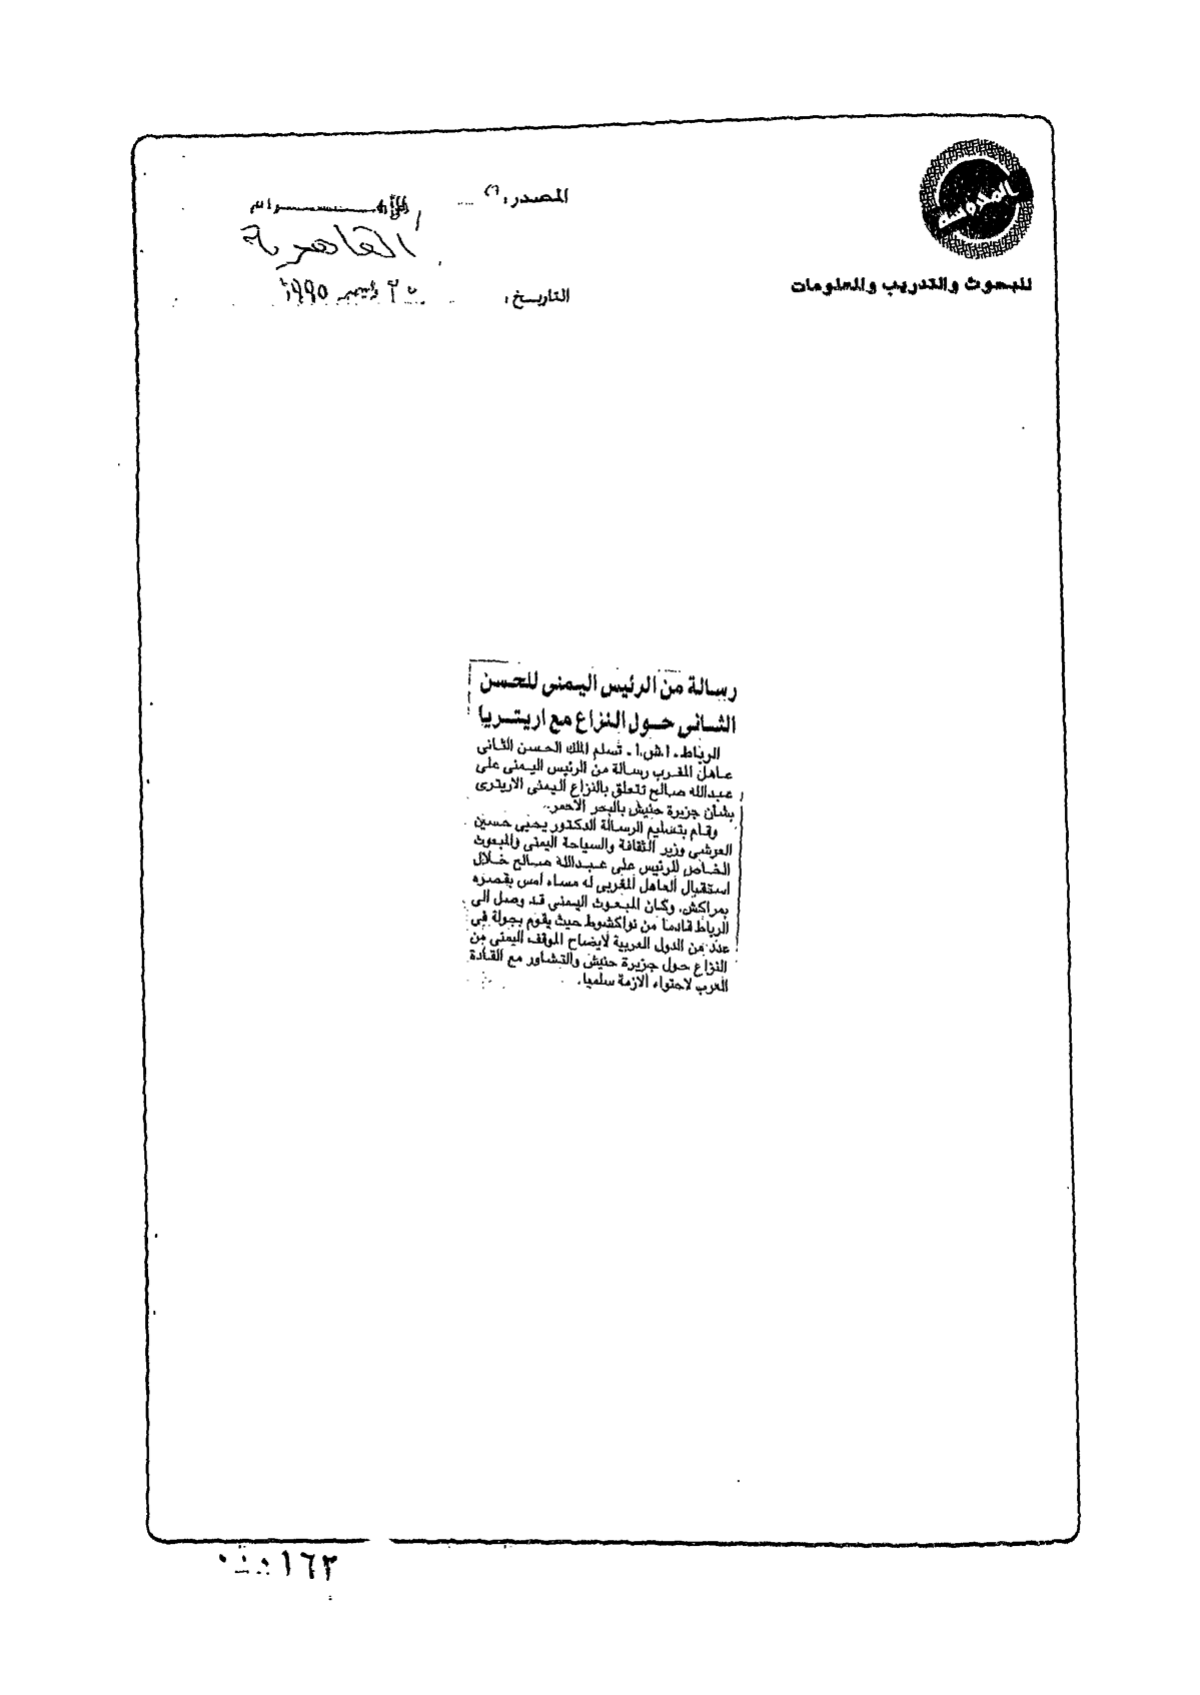 المدوسة
للبحوث والتدريب والمعلومات
المصدر :
الأهـــرام
القاهرية
التاريخ : ٢٠ ديسمبر ١٩٩٥
رسالة من الرئيس اليمنى للحسن
الثانى حول النزاع مع اريتريا
الرباط ـ ا.ش.ا ـ تسلم الملك الحسن الثانى
عاهل المغرب رسالة من الرئيس اليمنى على
عبدالله صالح تتعلق بالنزاع اليمنى الاريترى
بشأن جزيرة حنيش بالبحر الاحمر..
وقام بتسليم الرسالة الدكتور يحيى حسين
العرشى وزير الثقافة والسياحة اليمنى والمبعوث
الخاص للرئيس على عبدالله صالح خلال
استقبال العاهل المغربى له مساء امس بقصره
بمراكش. وكان المبعوث اليمنى قد وصل الى
الرباط قادما من نواكشوط حيث يقوم بجولة فى
عدد من الدول العربية لايضاح الموقف اليمنى من
النزاع حول جزيرة حنيش والتشاور مع القادة
العرب لاحتواء الازمة سلميا.
١٦٢